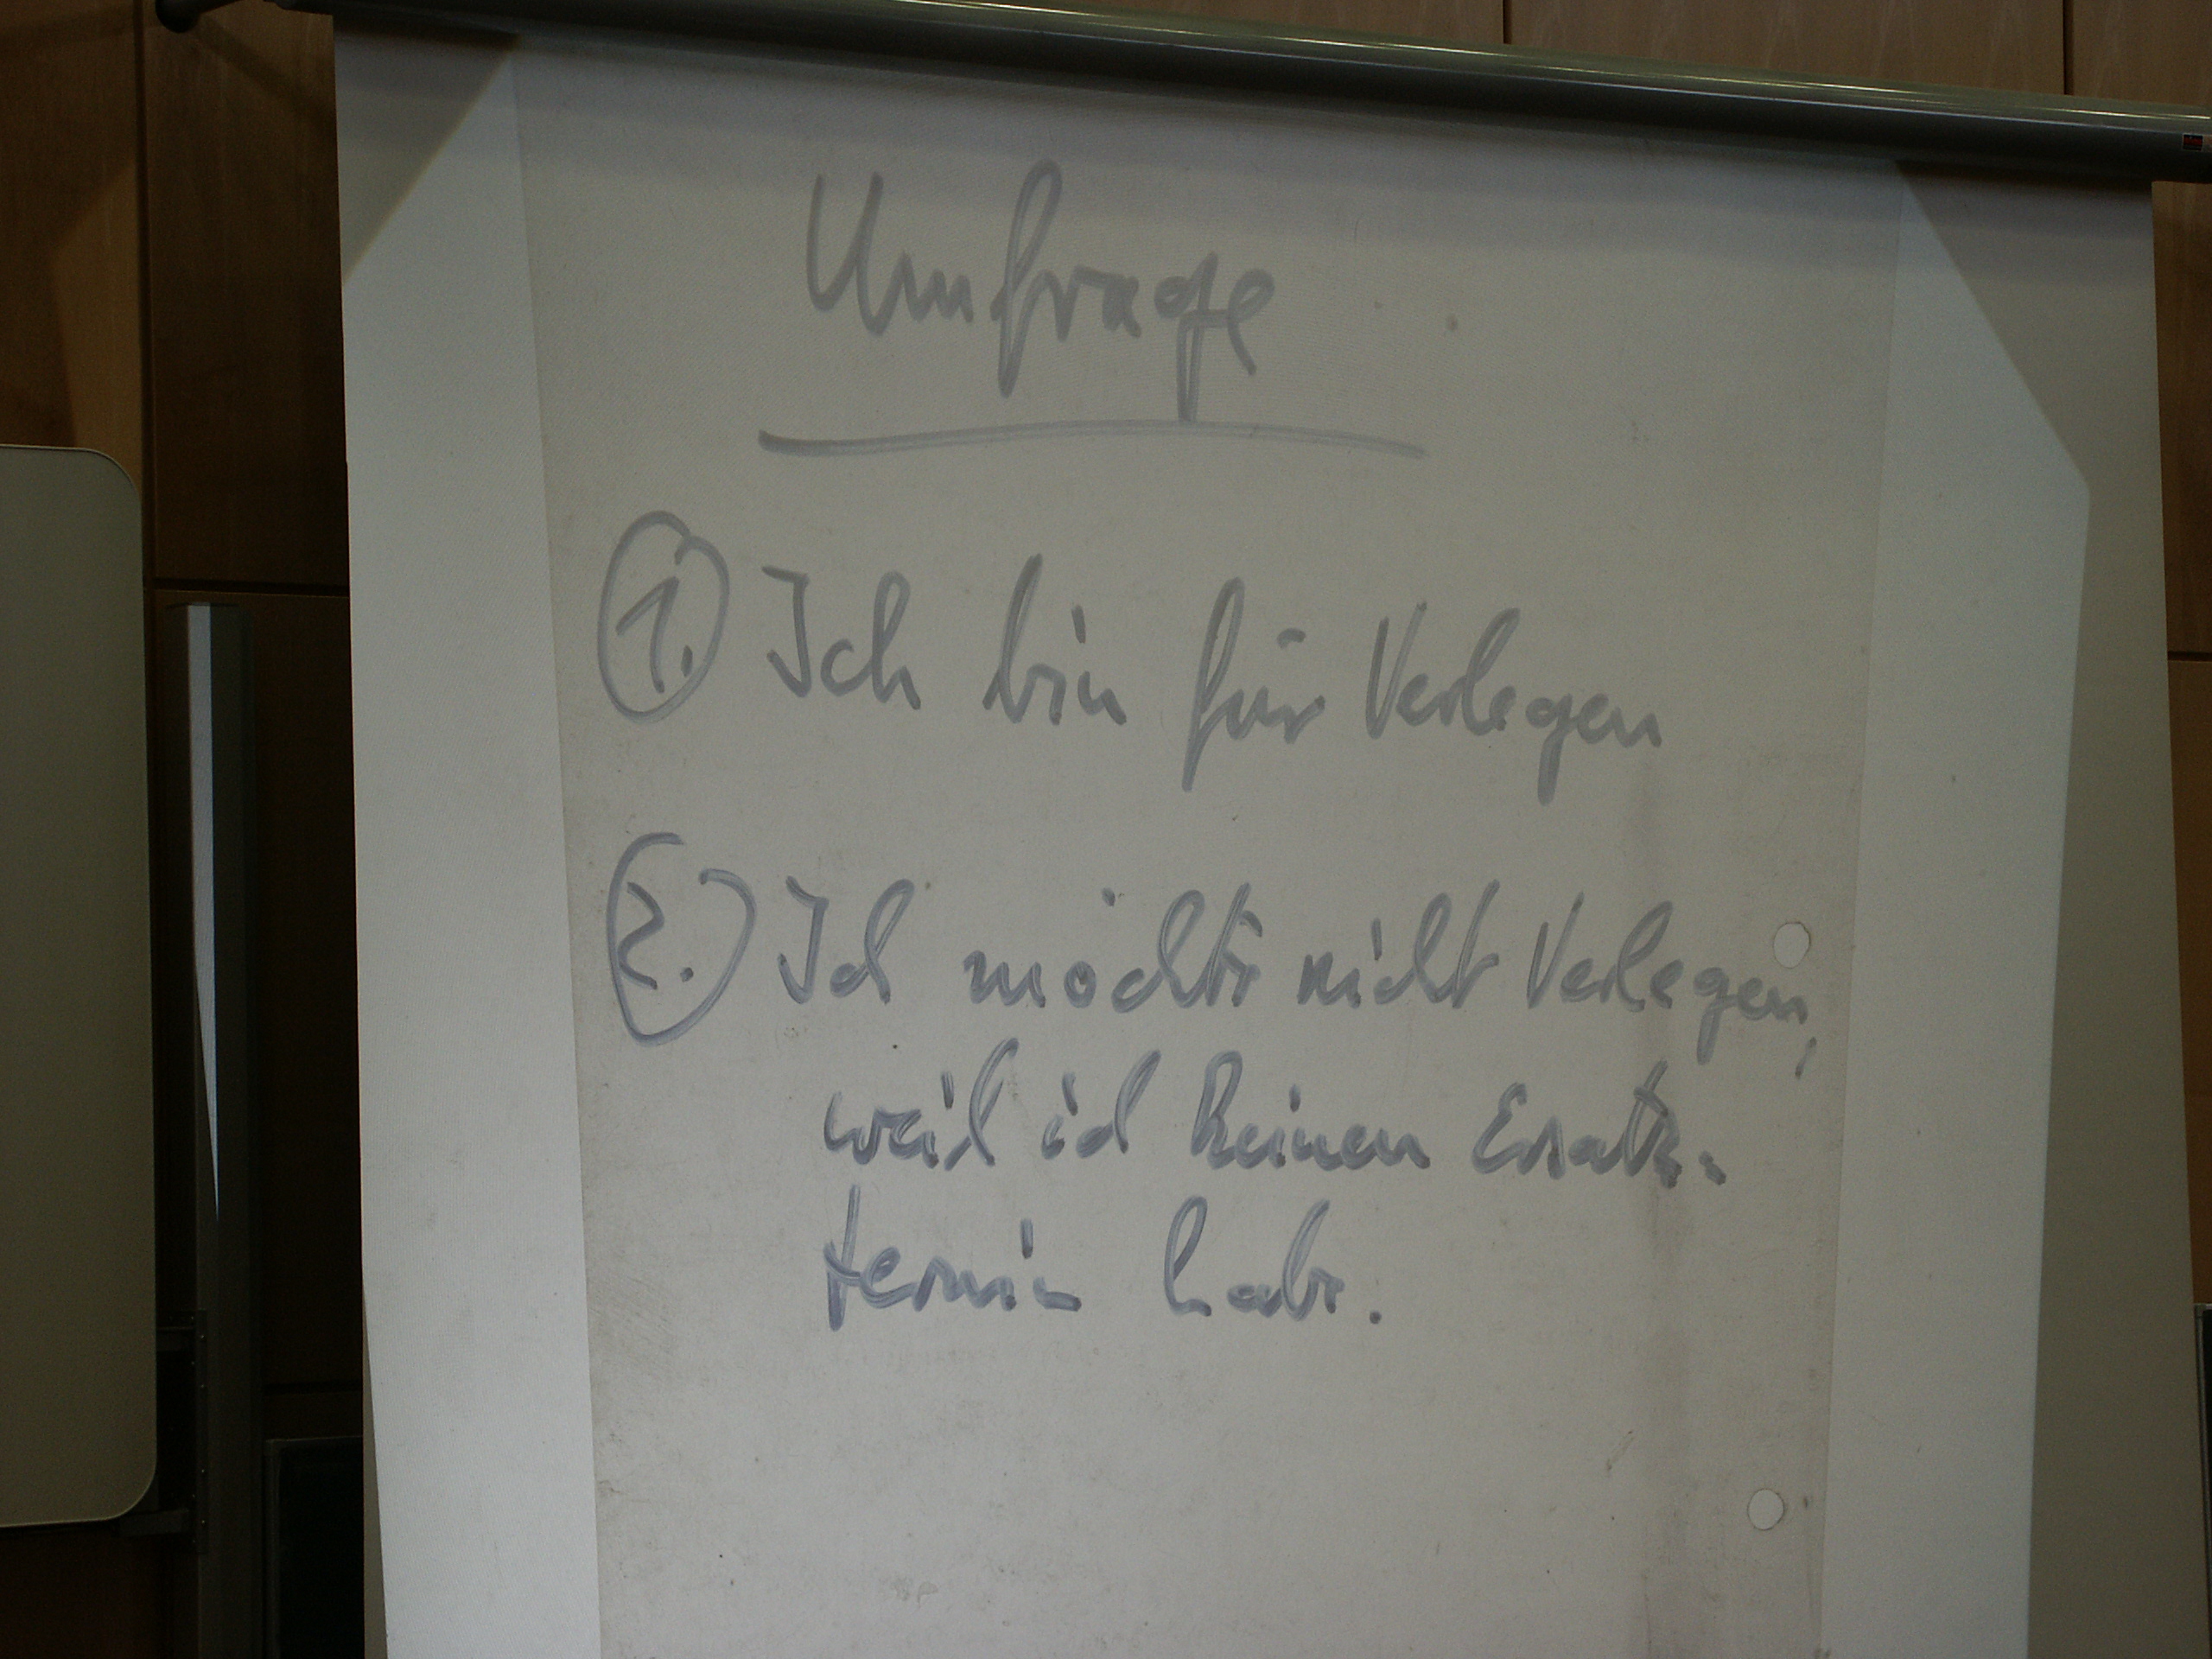 Umfrage
1. Ich bin für Verlegen
2. Ich möchte nicht Verlegen,
weil ich keinen Ersatz-
termin habe.